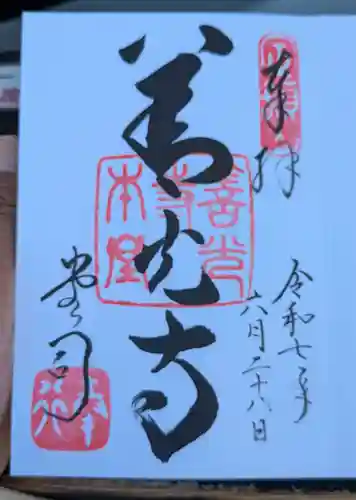 奉拝
令和七年
六月二十八日
善光寺
堂司
善光寺本堂